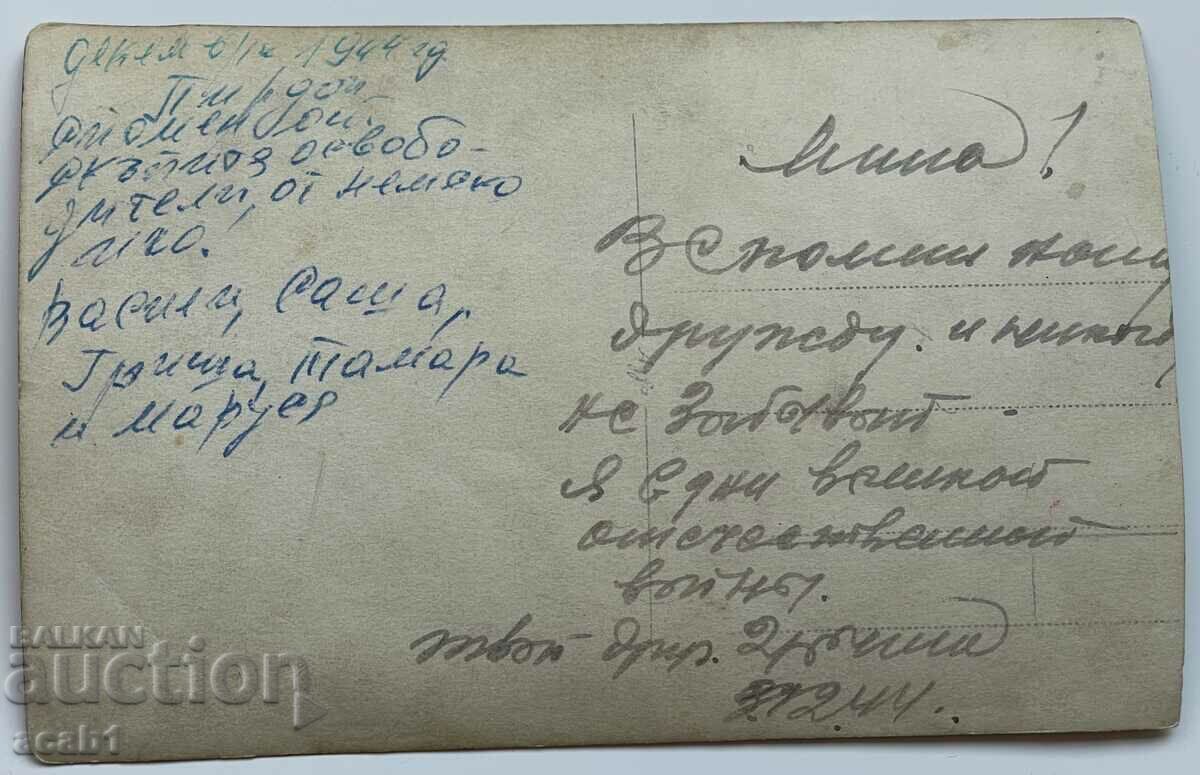 декември 1944 год
Пирдоп
спомен от
скъпитя освобо-
дители, от немско
иго.
Васили, Саша,
Гриша, Тамара
и Маруся
Нина!
Вспомни нашу
дружбу. и никог
не Забывай
в дни великой
отечественной
войны.
твой друг. Гриша
3.12.44.
BALKAN
auction
acab1